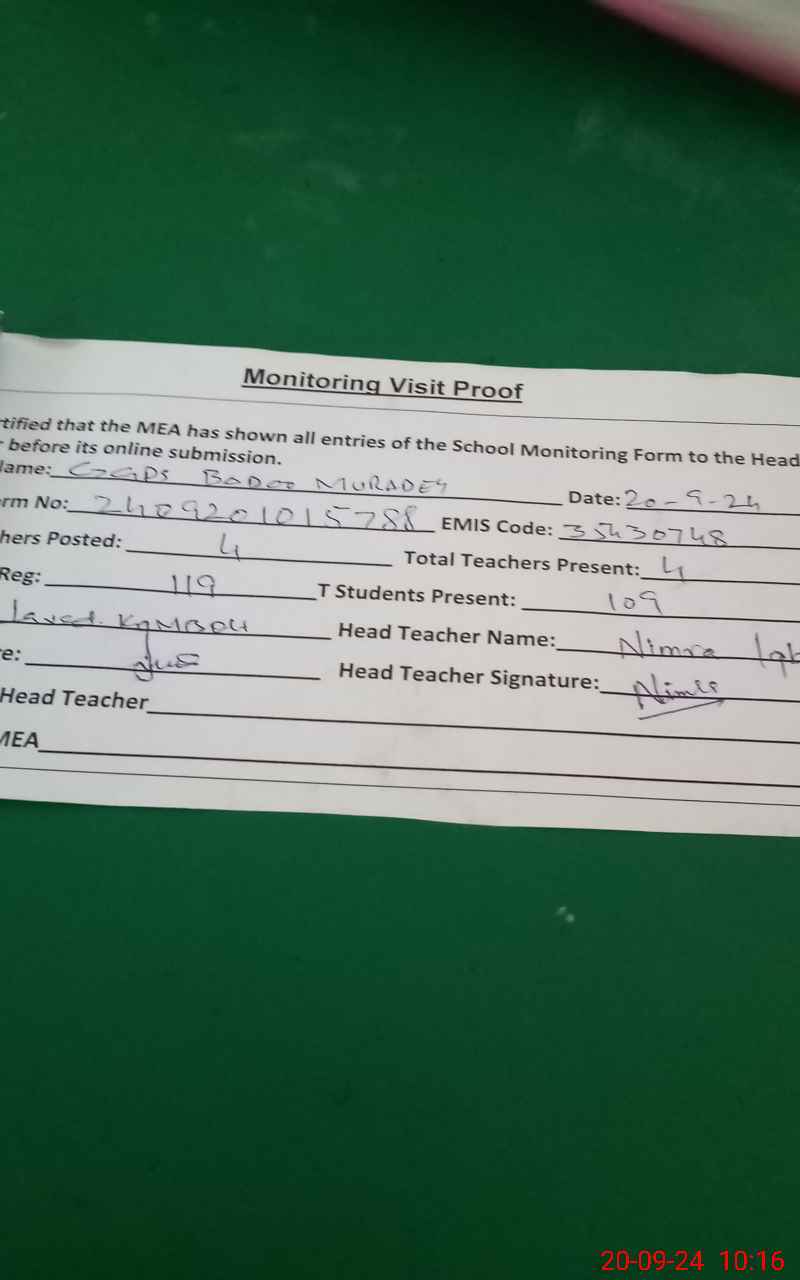 Monitoring Visit Proof
rtified that the MEA has shown all entries of the School Monitoring Form to the Head
r before its online submission.
lame: GGPS BADOO MURADEY Date: 20-9-24
orm No: 2409201015788 EMIS Code: 35430748
hers Posted: 4 Total Teachers Present: 4
Reg: 119 T Students Present: 109
Javed Head Teacher Name: Nimra Iqb
re: Head Teacher Signature: Nimra
Head Teacher
MEA
20-09-24 10:16